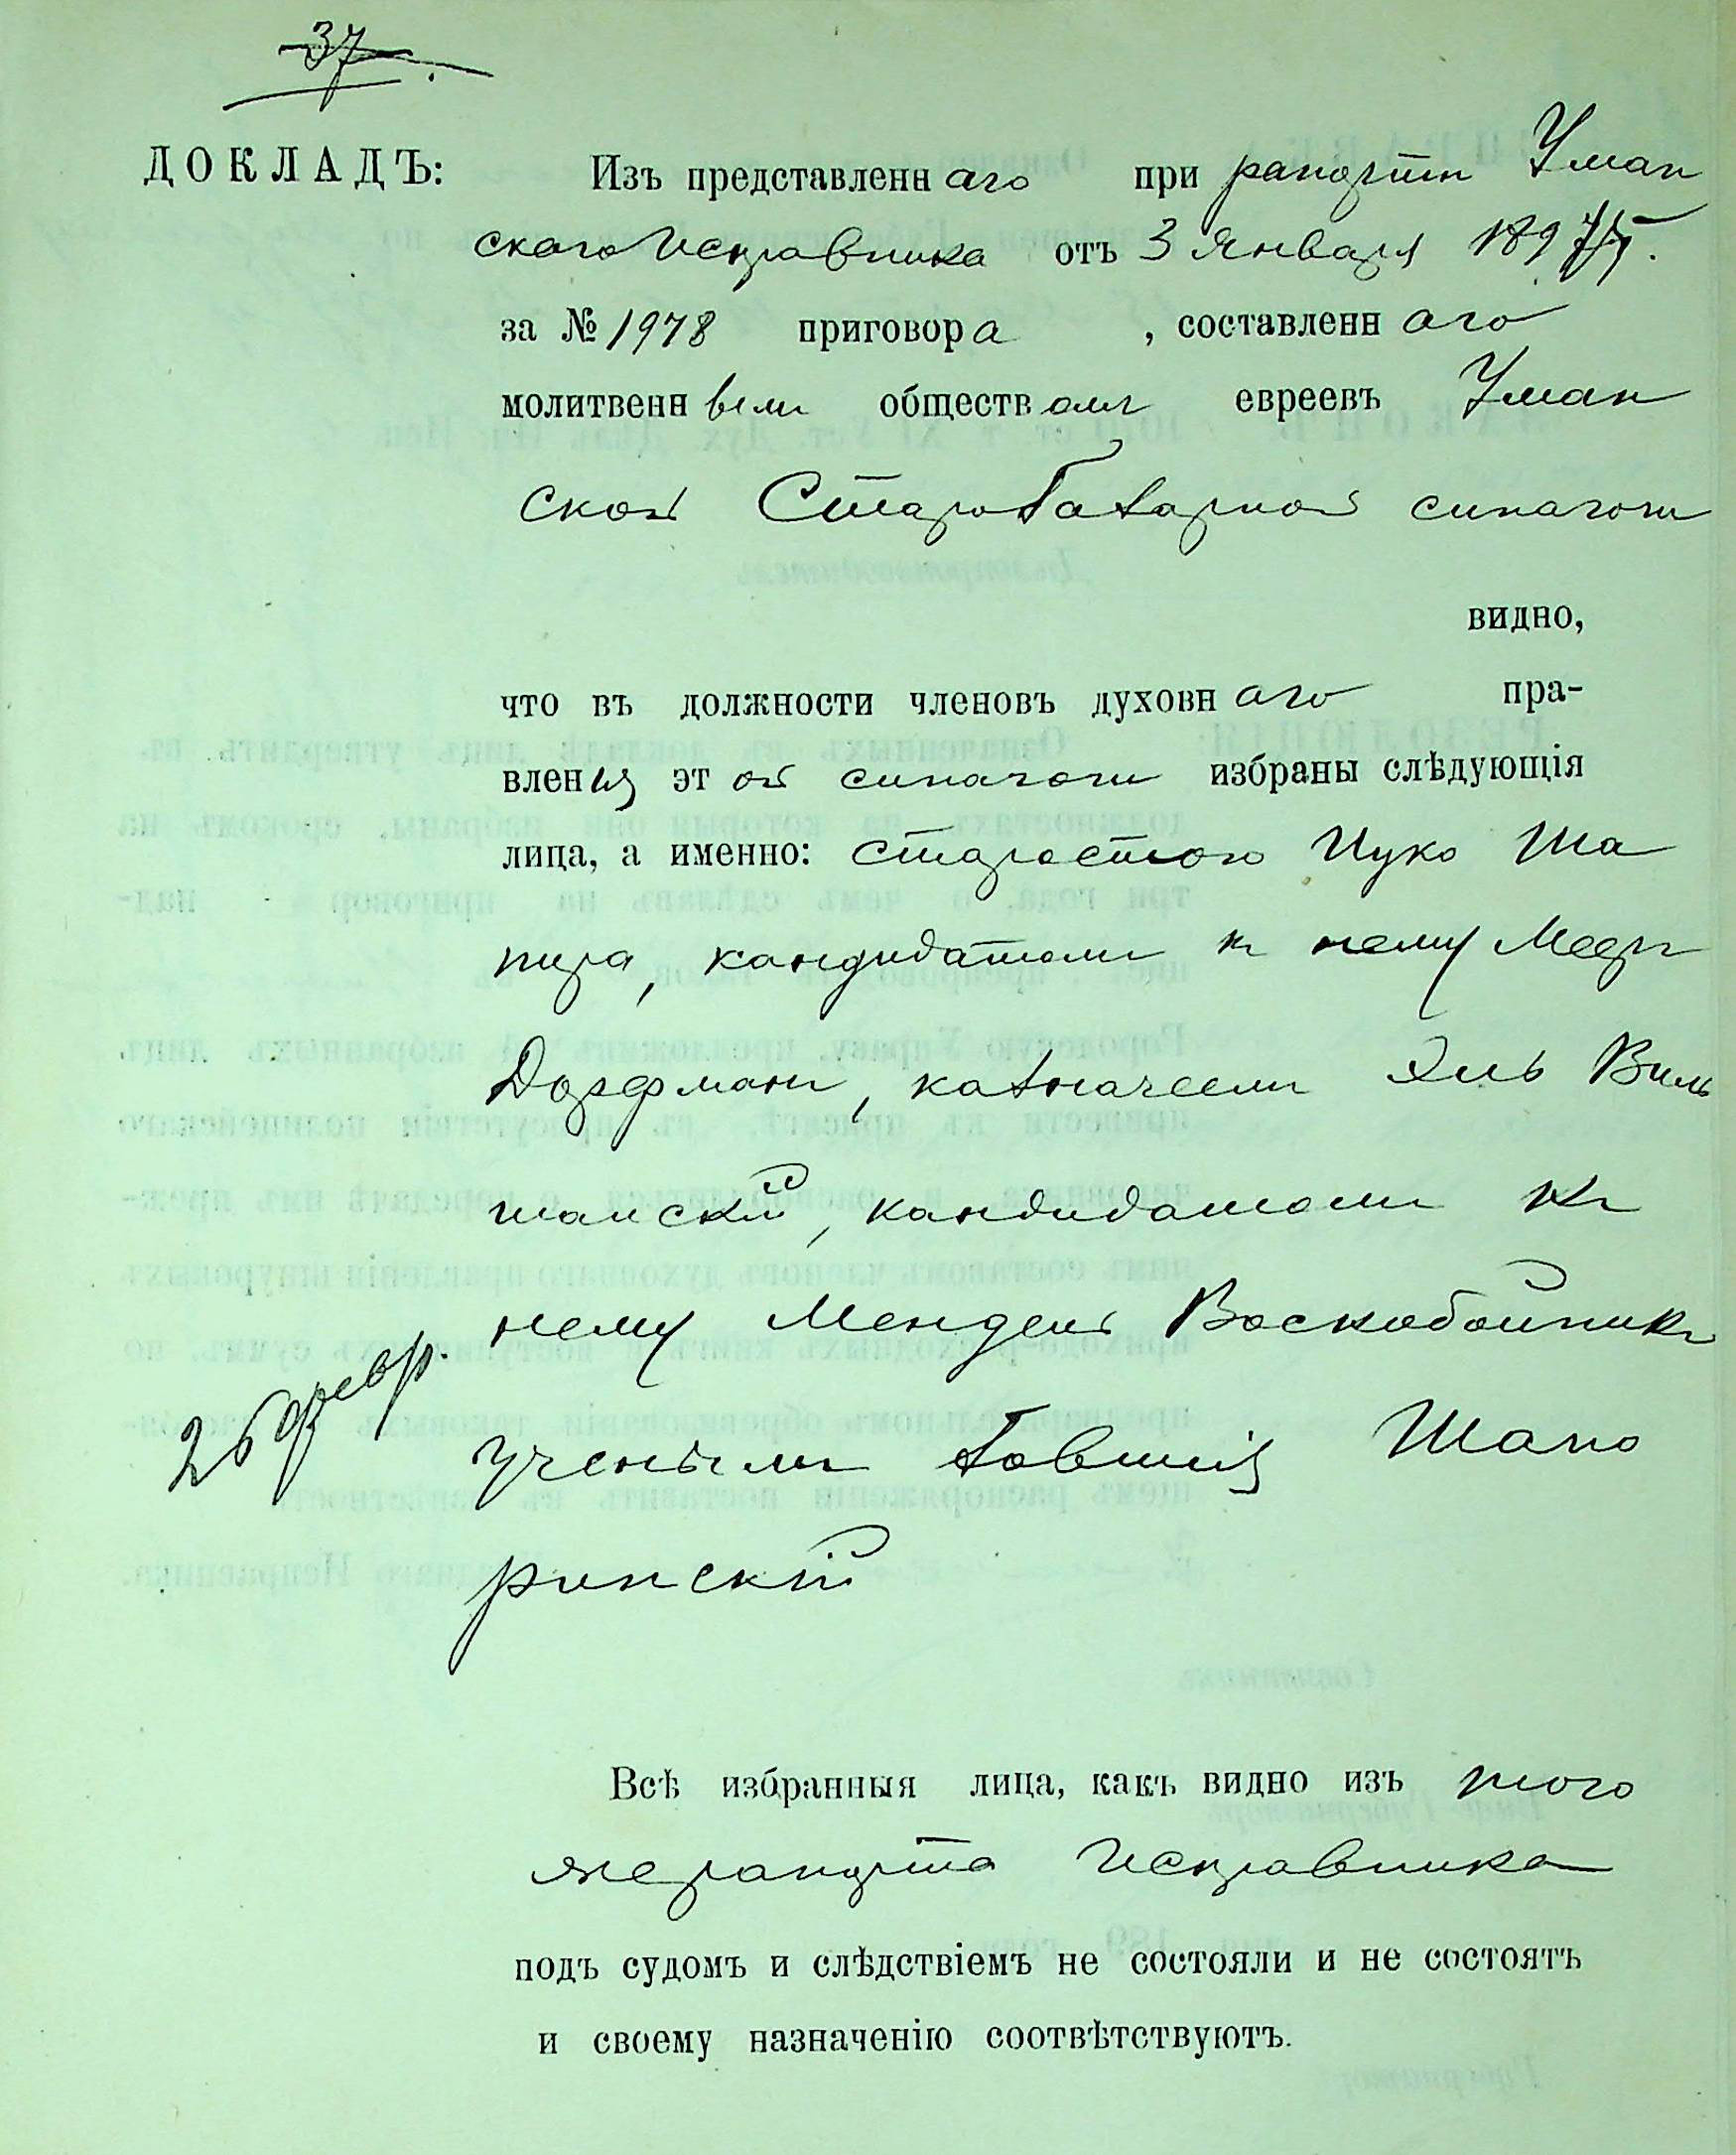 37.
ДОКЛАДЪ: Изъ представленнаго при рапортѣ Уман
скаго Исправника отъ 3 Января 1897/5 г.
за № 1978 приговора, составленнаго
молитвеннымъ обществомъ евреевъ Уман
ской Старобазарной синагоги
видно,
что въ должности членовъ духовнаго пра-
вленія этой синагоги избраны слѣдующія
лица, а именно: старостою Ицко Ша
пира, кандидатомъ къ нему Меер
Дорфманъ, казначеемъ Эль Виль
шанскій, кандидатомъ къ
нему Мендель Воскобойникъ
26 февр.
ученымъ Товшія Шапо
ринскій
Всѣ избранныя лица, какъ видно изъ того
же рапорта Исправника
подъ судомъ и слѣдствіемъ не состояли и не состоятъ
и своему назначенію соотвѣтствуютъ.